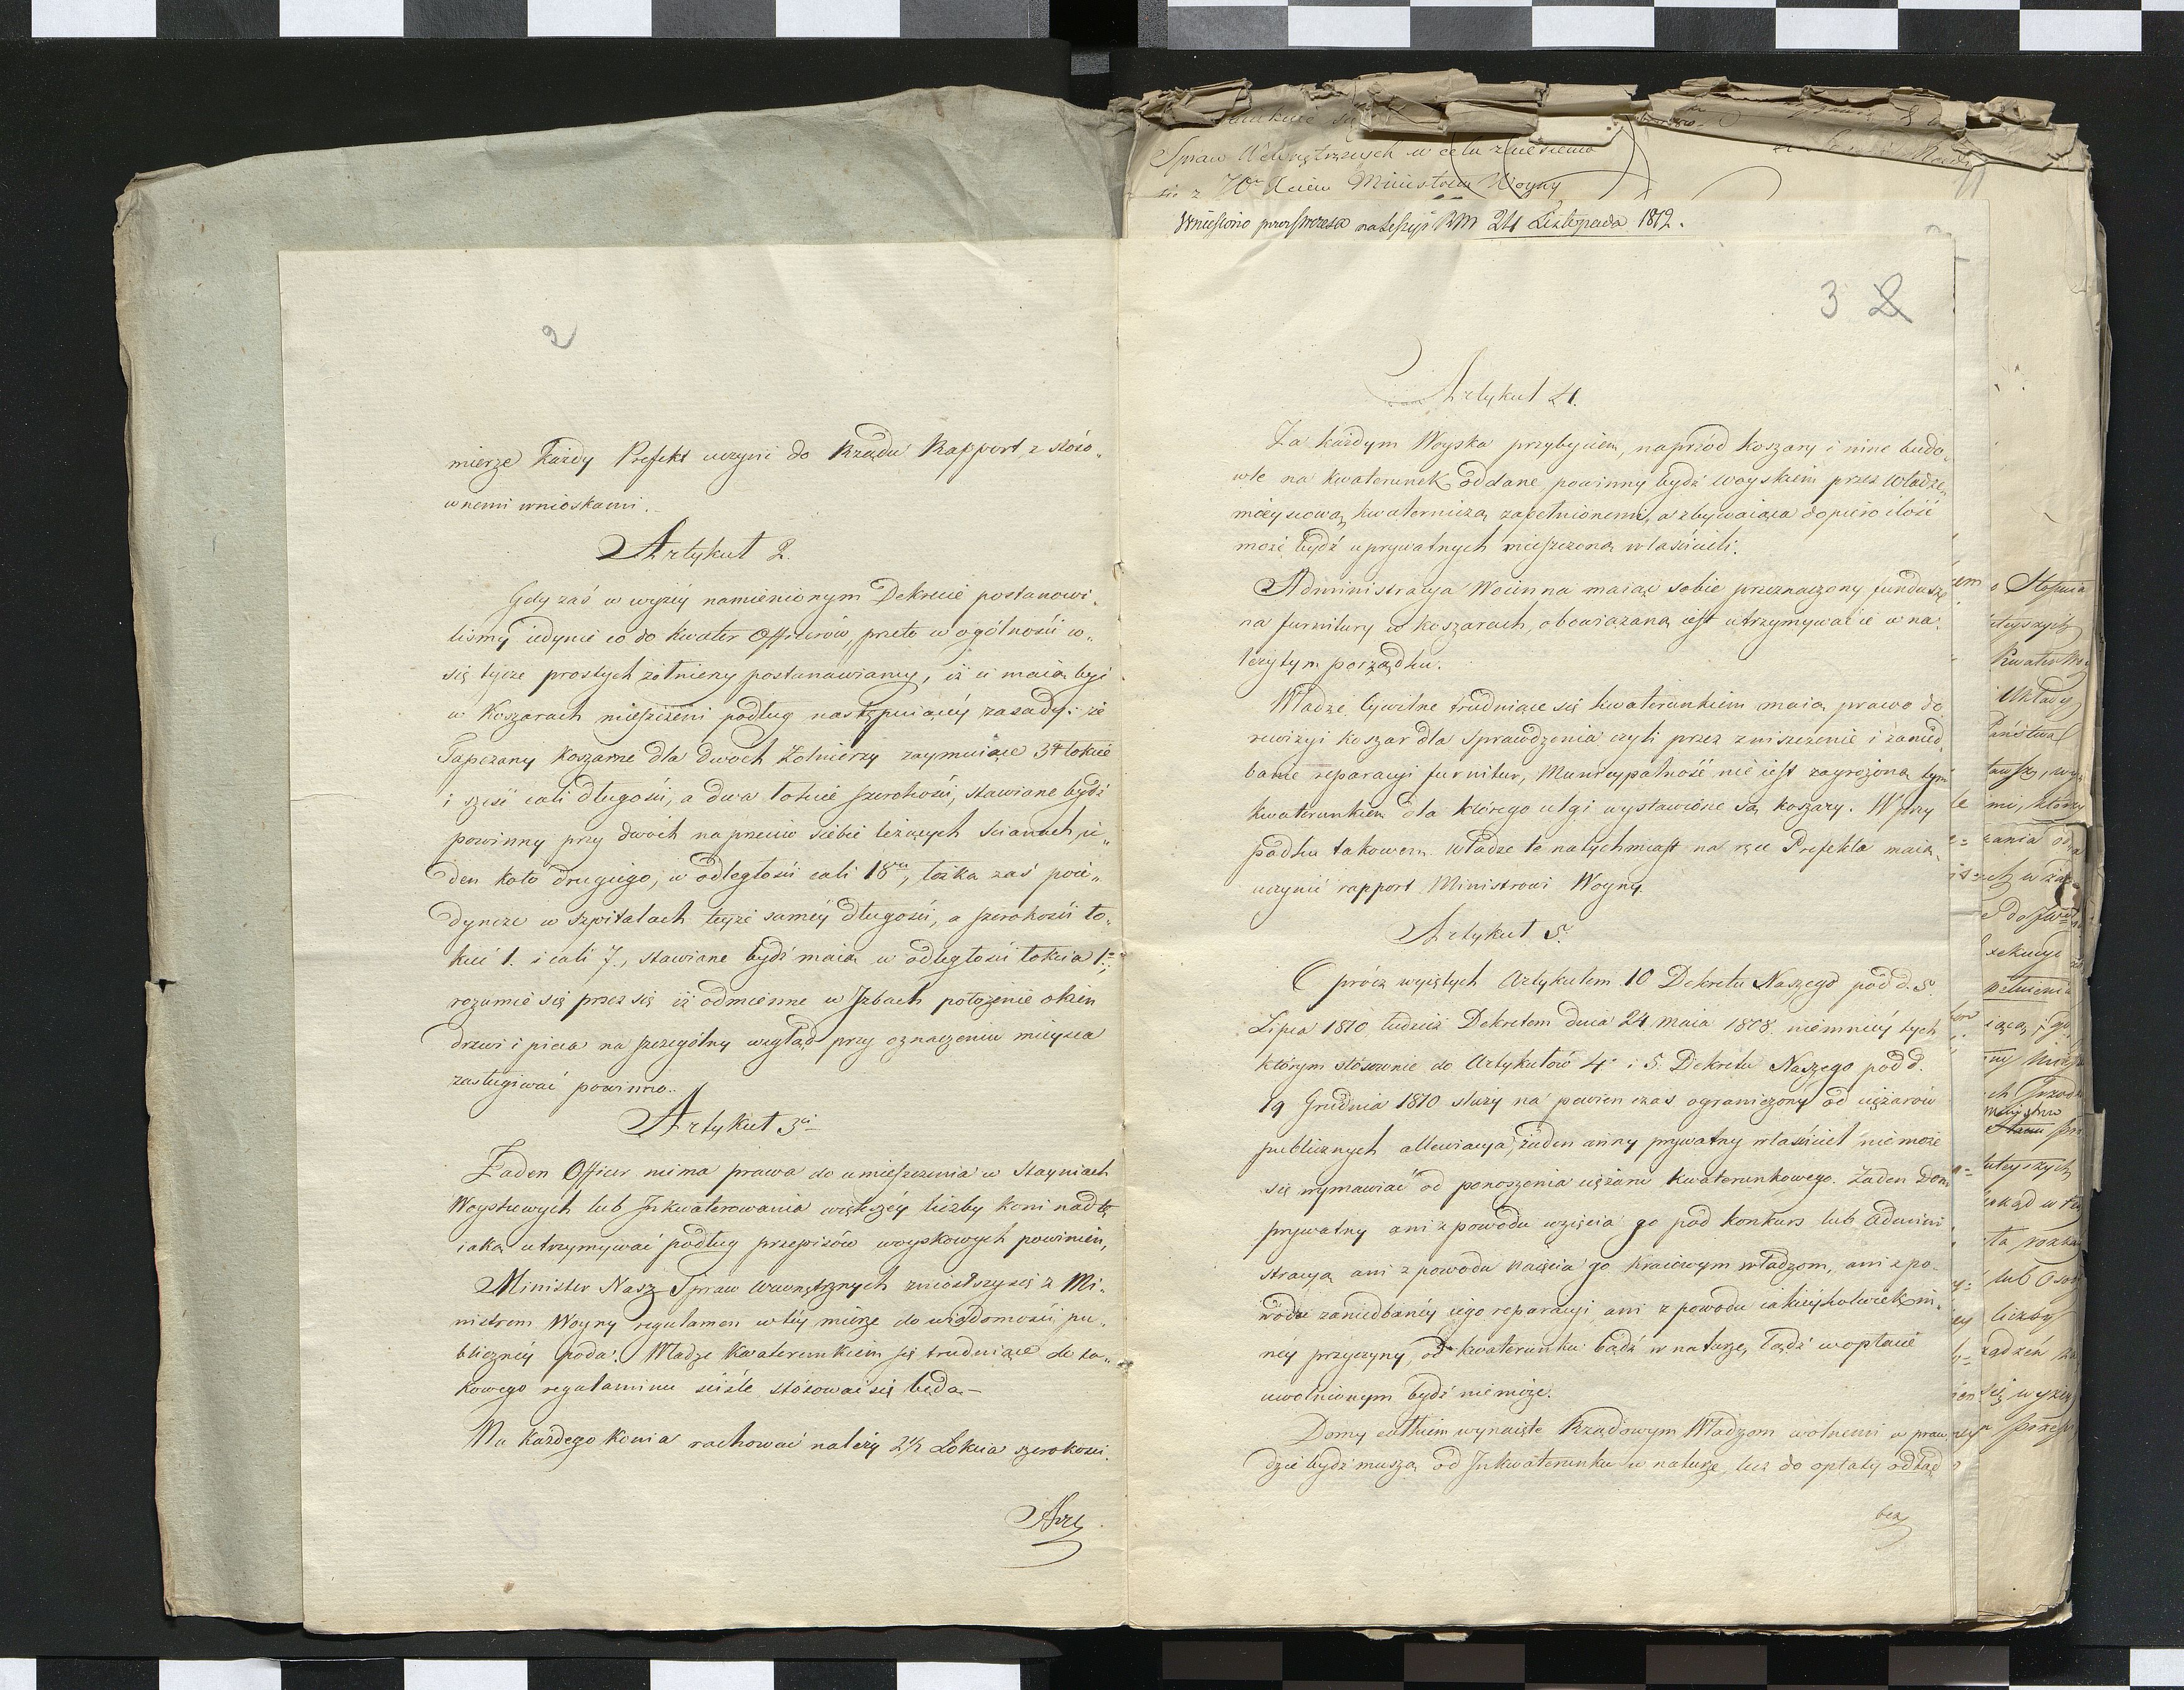 2
mierze każdy Prefekt uczyni do Rządu Rapport z stóso„
wnemi wnioskami.
Artykuł 2.
Gdy zaś w wyżéy namienionym Dekrecie postanowi„
liśmy iedynie co do kwater Officerów, przeto w ogólności co
się tycze prostych żołnierzy postanawiamy, iż ci maią być
w Koszarach mieszczeni podług następuiącéy zasady: że
Tapczany koszarne dla dwóch Żołnierzy zaymuiące 3 łokcie
i sześć cali długości, a dwa łokcie szerokości, stawiane bydź
powinny przy dwóch naprzeciw siebie leżących ścianach, ie„
den koło drugiego, w odległości cali 18tu, łóżka zaś poie„
dyncze w szpitalach teyże saméy długości, a szerokości ło„
kci 1. i cali 7, stawiane bydź maią w odległości łokcia 1.,
rozumie się przez się iż odmienne w Izbach położenie okien
drzwi i pieca na szczególny wzgląd przy oznaczeniu mieysca
zasługiwać powinno.
Artykuł 3ci
Żaden Officer nie ma prawa do umieszczenia w stayniach
Woyskowych lub Inkwaterowania większéy liczby koni nad tę
iaką utrzymywać podług przepisów woyskowych powinien,
Minister Nasz Spraw Wewnętrznych zniósłszy się z Mi„
nistrem Woyny regulamen w téy mierze do wiadomości pu„
blicznéy poda. Władze kwaterunkiem się trudniące do ta„
kowego regulaminu ściśle stósować się będą —
Na każdego konia rachować należy 2 1/2 Łokcia szerokości.
Art
Spraw Wewnętrznych w celu zniesienia
się z JWm Xciem Ministrem Woyny
Wniesiono powtórnie na Sessyi RM 24 Listopada 1812.
3 2
Artykuł 4.
Za każdym Woyska przybyciem, naprzód koszary i inne budo„
wle na kwaterunek oddane, powinny bydź woyskiem przez władzę
mieyscową kwaterniczą zapełnionemi, a zbywaiąca dopiero ilość
może bydź u prywatnych mieszczoną właścicieli.
Administracya Woienna maiąc sobie przeznaczony fundusz
na furnitury w koszarach, obowiązaną iest utrzymywać ie w na„
leżytym porządku.
Władze Cywilne trudniące się kwaterunkiem maią prawo do
rewizyi koszar dla sprawdzenia czyli przez zniszczenie i zanied„
banie reparacyi furnitur, Municypalność nie iest zagrożoną tym
kwaterunkiem dla którego ulgi wystawione są koszary. W przy
padku takowem władze te natychmiast na ręce Prefekta maią
uczynić rapport Ministrowi Woyny.
Artykuł 5.
Oprócz wyiętych Artykułem 10 Dekretu Naszego pod d. 5.
Lipca 1810, tudzież Dekretem dnia 24 maia 1808. niemniéy tych
którym stósownie do Artykułów 4. i 5. Dekretu Naszego pod d.
19 Grudnia 1810 służy na pewien czas ograniczony od ciężarów
publicznych allewiacya, żaden inny prywatny właściciel nie może
się wymawiać od ponoszenia ciężaru kwaterunkowego. Żaden Dom
prywatny ani z powodu wzięcia go pod konkurs lub Admini
stracyą ani z powodu naięcia go kraiowym władzom, ani z po„
wodu zaniedbanéy iego reparacyi, ani z powodu iakiéykolwiek in„
néy przyczyny, od kwaterunku bądź w naturze, bądź w opłacie
uwolnionym bydź nie może.
Domy całkiem wynaięte Rządowym Władzom wolnemi w praw„
dzie bydź muszą od Inkwaterunku w naturze, lecz do opłaty odtąd
bez